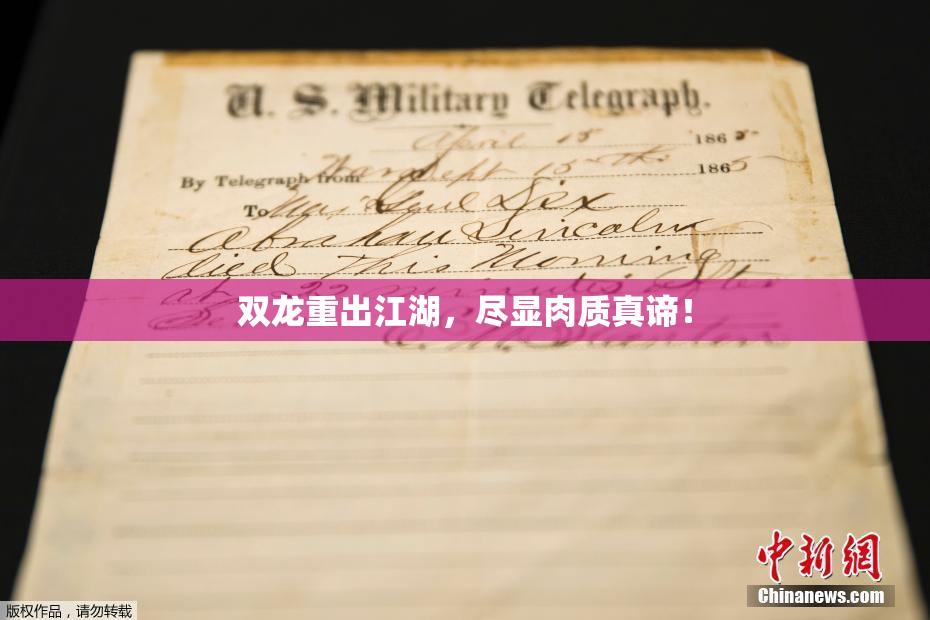 U. S. Military Telegraph.
April 15 1865
By Telegraph from War Dept 15th 1865
To Maj Genl Dix
Abraham Lincoln
died This Morning
at 22 minutes After
双龙重出江湖，尽显肉质真谛！
E. M. Stanton
中新网
Chinanews.com
版权作品，请勿转载